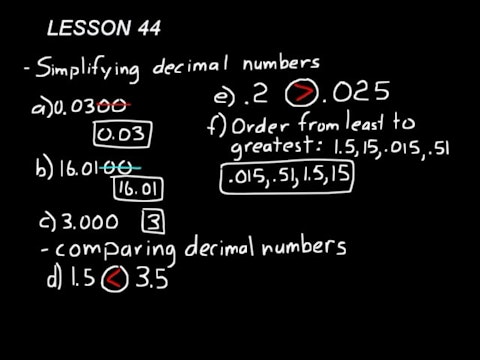 LESSON 44
- Simplifying decimal numbers
a) 0.0300
0.03
b) 16.0100
16.01
c) 3.000 3
- comparing decimal numbers
d) 1.5 < 3.5
e) .2 > .025
f) Order from least to
greatest: 1.5, 15, .015, .51
.015, .51, 1.5, 15